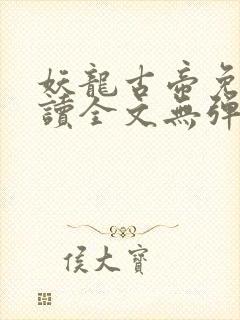 妖龍古帝免
讀全文無彈
侯大寶